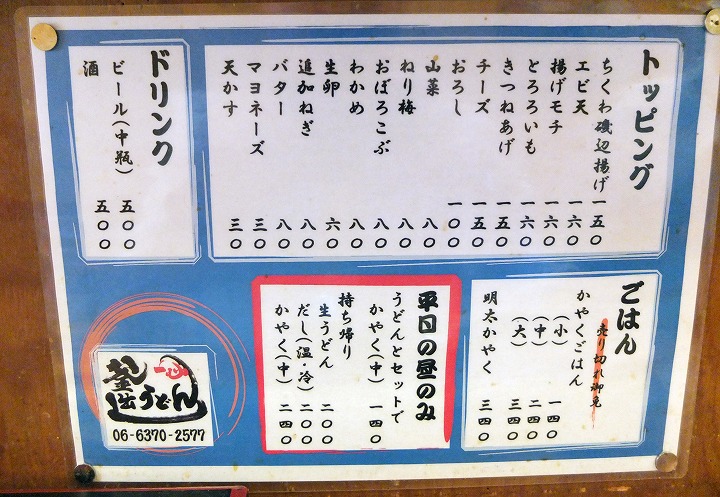 トッピング
ちくわ磯辺揚げ 一五〇
エビ天 一六〇
揚げモチ 一六〇
とろろいも 一六〇
きつねあげ 一五〇
チーズ 一五〇
おろし 一〇〇
山菜 八〇
ねり梅 八〇
おぼろこぶ 八〇
わかめ 八〇
生卵 六〇
追加ねぎ 八〇
バター 八〇
マヨネーズ 三〇
天かす 三〇
ドリンク
ビール(中瓶) 五〇〇
酒 五〇〇
ごはん
売り切れ御免
かやくごはん
(小) 一四〇
(中) 二四〇
(大) 三四〇
明太かやく 三四〇
平日の昼のみ
うどんとセットで
かやく(中) 一四〇
持ち帰り
生うどん 二〇〇
だし(温・冷) 二〇〇
かやく(中) 二四〇
釜出しうどん
06-6370-2577